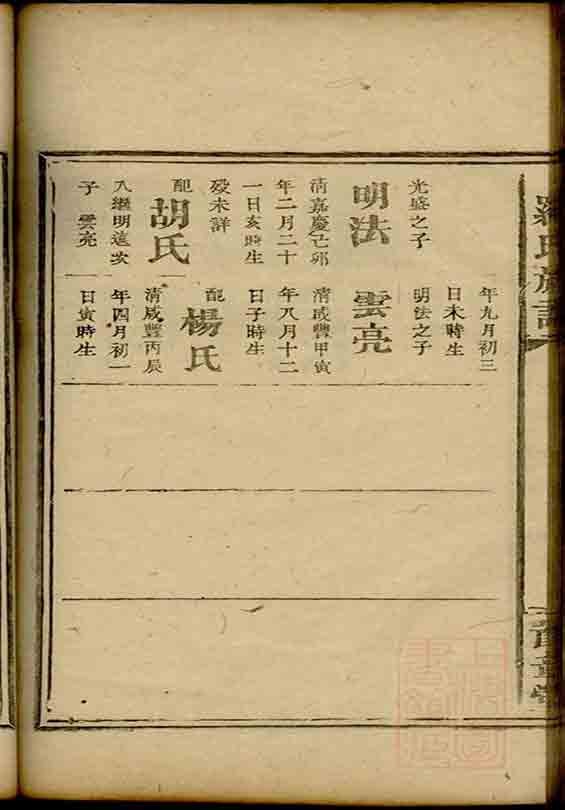 羅氏族譜
章堂
光盛之子
明法
清嘉慶己卯
年二月二十
一日亥時生
歿未詳
配
胡氏
入繼明遠次
子 雲亮
年九月初三
日未時生
明法之子
雲亮
清咸豐甲寅
年八月十二
日子時生
配
楊氏
清咸豐丙辰
年四月初一
日寅時生
上海圖
書館藏